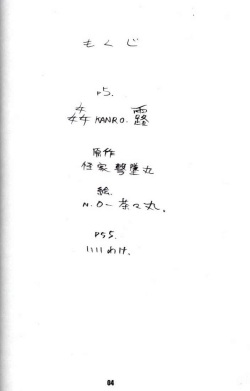 もくじ
P5.
姦 KANRO. 露
原作
怪家 撃墜丸
絵
N.O-茶々丸.
P55.
いいわけ.
04